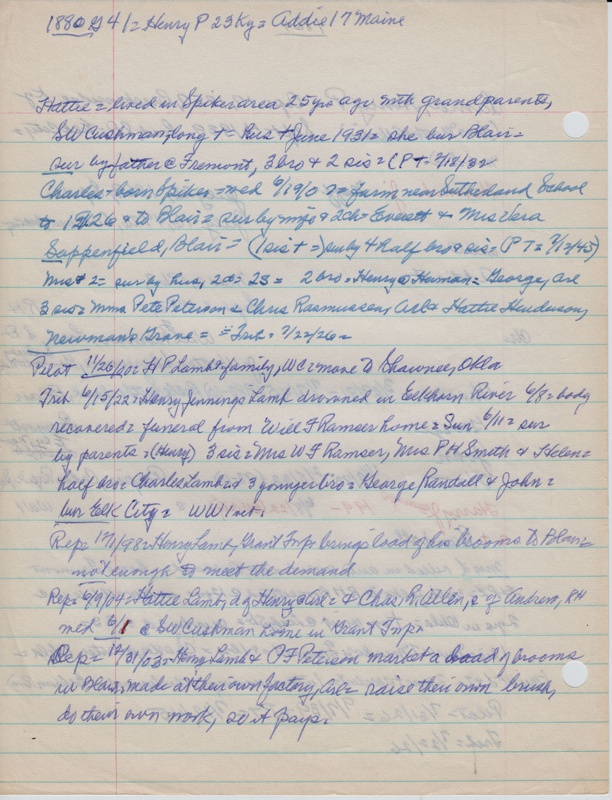 1880 G 41 = Henry P 23 Ky = Addie 17 Maine
Hattie = lived in Spiker area 25 yrs ago with grandparents,
SW Cushman, long + = Hus + June 1931 = she bur Blair =
sur by father @ Fremont, 3 bro & 2 sis = (PT = 2/18/32
Charles = born Spiker = med 6/19/07 = Farm near Sutherland School
to 1926 & to Blair = sur by wife & 2 ch = Everett & Mrs Vera
Sappenfield, Blair = (1 sis + =) sur by 4 half bro & sis = (PT = 7/12/45)
Mrs # 2 = sur by hus, 2d = 2s = 2 bro = Henry @ Herman = George, Arl
3 sis = Mmes Pete Peterson & Chris Rasmussen, Arl & Hattie Henderson,
Newman's Grove = = Trib = 7/22/26 =
Pilot 11/26/20 = H P Lamb & family, WC = move to Shawnee, Okla
Trib 6/15/22 = Henry Jennings Lamb drowned in Elkhorn River 6/8 = body
recovered = funeral from Will F Ramser home = Sun 6/11 = sur
by parents = (Henry) 3 sis = Mrs W F Ramser, Mrs P H Smith & Helen =
half bro = Charles Lamb & 3 younger bro = George, Randall & John =
bur Elk City = WW 1 vet.
Rep = 1/98 = Henry Lamb, Grant Twp brings load of his brooms to Blair =
not enough to meet the demand
Rep = 6/9/04 = Hattie Lamb, d of Henry @ Arl = & Chas R. Allen, s of Andrew, RH
med 6/1 @ SW Cushman home in Grant Twp.
Rep = 12/31/03 = Henry Lamb & P F Peterson market a load of brooms
in Blair, made at their own factory, Arl = raise their own brush,
do their own work, so it pays.